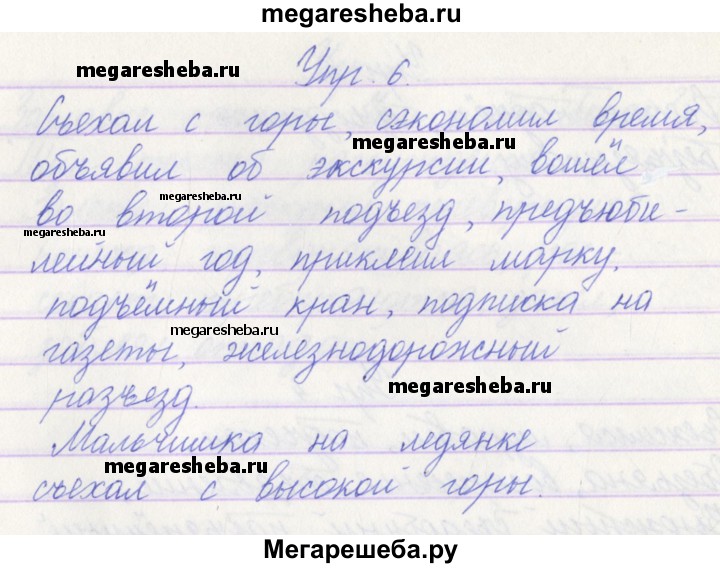 megaresheba.ru
Упр. 6.
megaresheba.ru
Съехал с горы, сэкономил время,
megaresheba.ru
объявил об экскурсии, вошёл
megaresheba.ru
во второй подъезд, предъюби-
megaresheba.ru
лейный год, приклеил марку,
подъёмный кран, подписка на
megaresheba.ru
газеты, железнодорожный
megaresheba.ru
разъезд.
Мальчишка на ледянке
megaresheba.ru
съехал с высокой горы.
Мегарешеба.ру